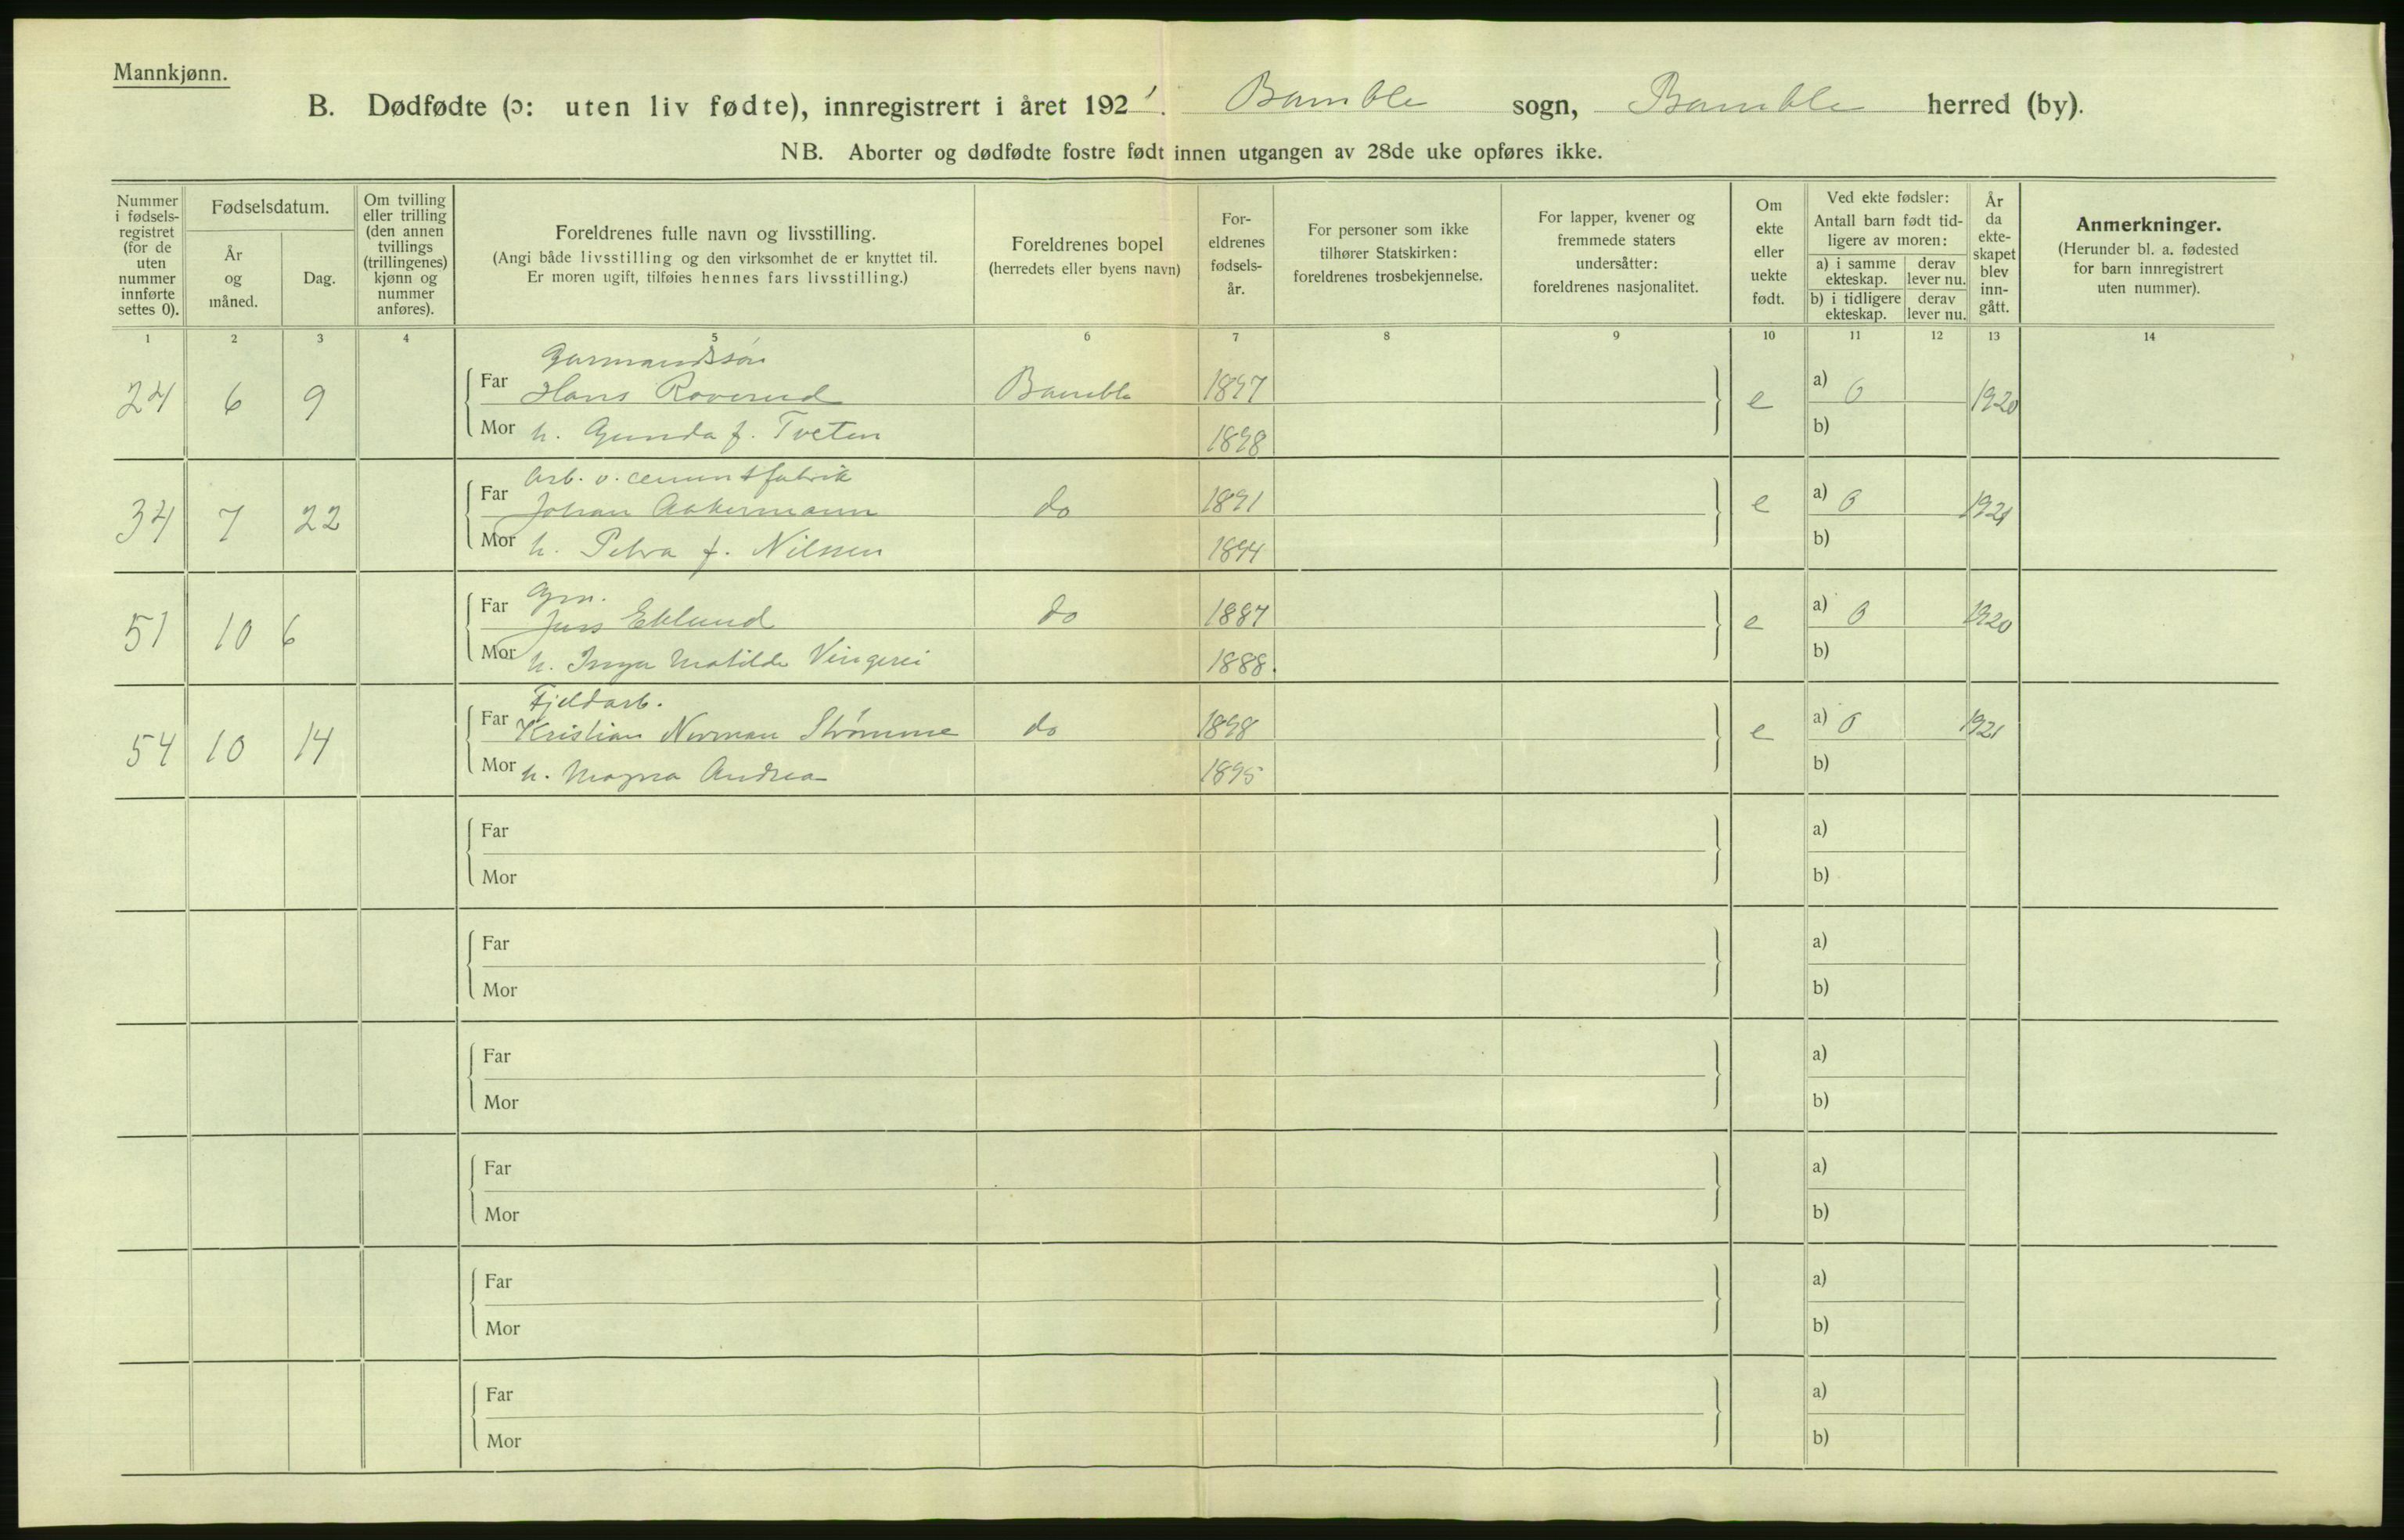 Mannkjønn.
B. Dødfødte (ɔ: uten liv fødte), innregistrert i året 1921. Bamble sogn, Bamble herred (by).
NB. Aborter og dødfødte fostre født innen utgangen av 28de uke opføres ikke.
Nummer i fødsels-registret (for de uten nummer innførte settes 0).
Fødselsdatum.
År og måned.
Dag.
Om tvilling eller trilling (den annen tvillings (trillingenes) kjønn og nummer anføres).
Foreldrenes fulle navn og livsstilling.
(Angi både livsstilling og den virksomhet de er knyttet til.
Er moren ugift, tilføies hennes fars livsstilling.)
Foreldrenes bopel
(herredets eller byens navn)
For-eldrenes fødsels-år.
For personer som ikke tilhører Statskirken: foreldrenes trosbekjennelse.
For lapper, kvener og fremmede staters undersåtter: foreldrenes nasjonalitet.
Om ekte eller uekte født.
Ved ekte fødsler:
Antall barn født tid-ligere av moren:
a) i samme ekteskap.
derav lever nu.
b) i tidligere ekteskap.
derav lever nu.
År da ekte-skapet blev inn-gått.
Anmerkninger.
(Herunder bl. a. fødested for barn innregistrert uten nummer).
1 2 3 4 5 6 7 8 9 10 11 12 13 14
Gaarmandssøn
24 6 9 Far Hans Roverud Bamble 1897 e a) 0 1920
Mor h. Gunda f. Tveten 1898 b)
Arb. v. cementfabrik
34 7 22 Far Johan Aakermann do 1891 e a) 0 1921
Mor h. Petra f. Nilssen 1894 b)
Grm.
51 10 6 Far Jens Eklund do 1887 e a) 0 1920
Mor h. Inga Matilde Vingerei 1888. b)
Fjeldarb.
54 10 14 Far Kristian Norman Strømme do 1898 e a) 0 1921
Mor h. Magna Andrea 1895 b)
Far a)
Mor b)
Far a)
Mor b)
Far a)
Mor b)
Far a)
Mor b)
Far a)
Mor b)
Far a)
Mor b)